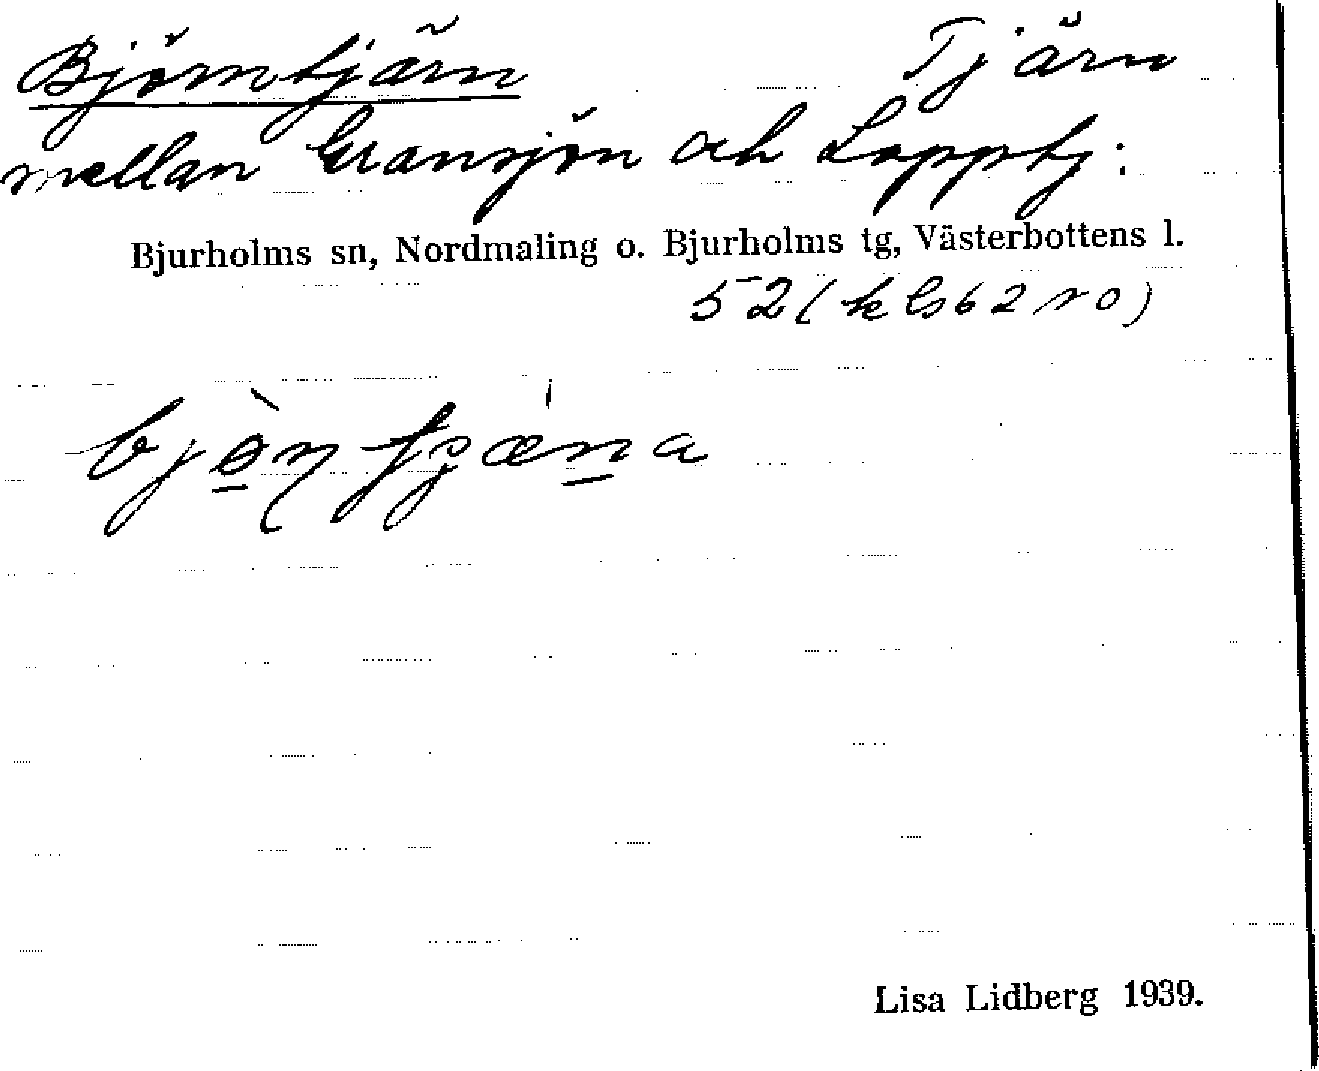 Björntjärn Tjärn
mellan Gransjön och Lapptj:
Bjurholms sn, Nordmaling o. Bjurholms tg, Västerbottens l.
52 (k
Lisa Lidberg 1939.